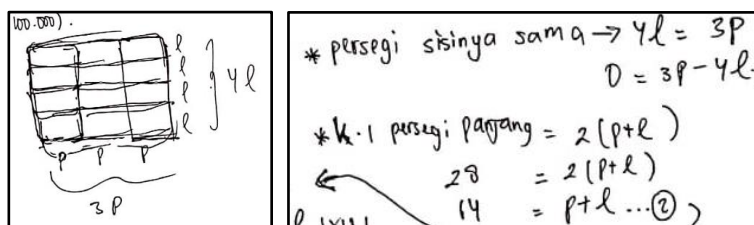 100.000).
l
l
l
l
4l
p p p
3p
* persegi sisinya sama → 4l = 3p
0 = 3p - 4l.
* k. 1 persegi panjang = 2(p+l)
28 = 2(p+l)
14 = p+l ...②